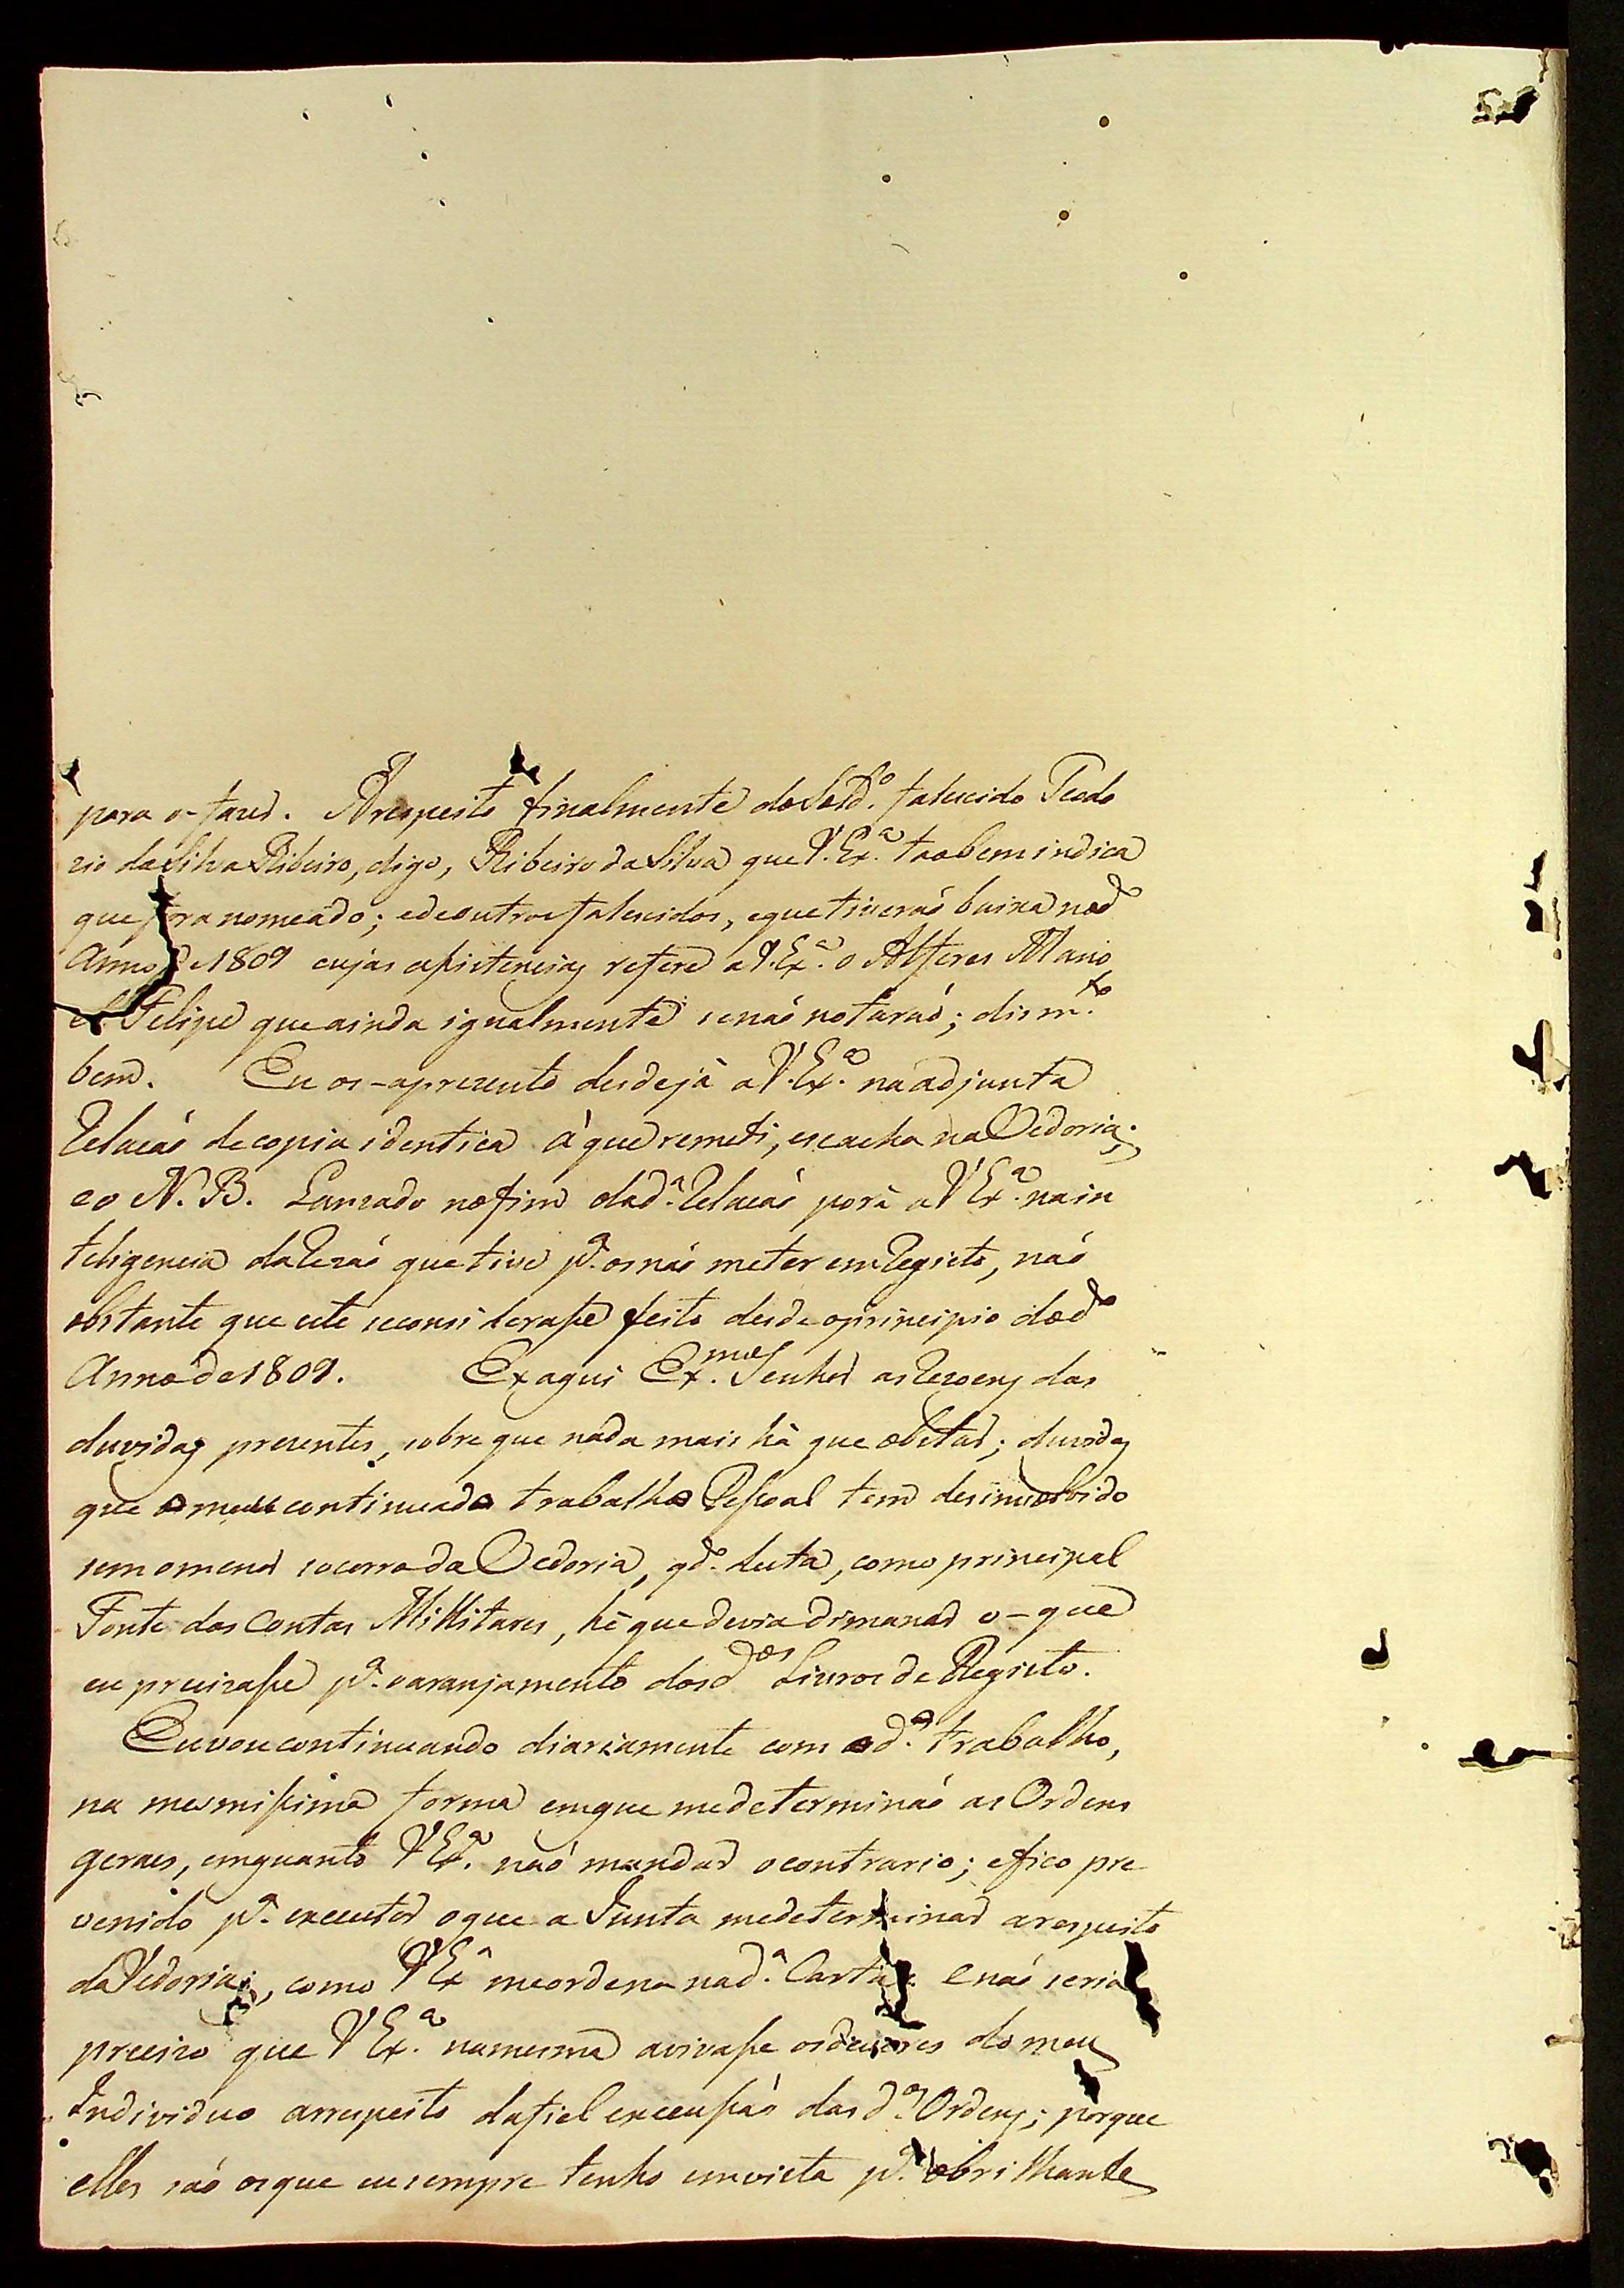 para o-fazer. Arespeito finalmente do Sold.º falecido Teodo
rio da Silva Ribeiro, digo, Ribeiro da Silva que V. Ex.ª taobem indica
que fora nomeado; e de outros falecidos, e que tiveraó baixa no d.º
Anno de 1809 cujas assistencias refere a V. Ex.ª o Alferes Mano
el Felipe que ainda igualmente se naó notaraó; diz m.to
bem. Eu os-aprezento desdejà a V. Ex.ª na adjunta
Relacaó de copia identica à que remeti, e se acha na Vedoria;
e o N. B. Lanzado no fim da d.ª Relacaó porà a V Ex.ª na in
teligencia da Rezaó que tive p.ª os naó meter em Registo, naó
obstante que este se considerasse feito desde o principio do d.º
Anno de 1809. Ex aqui Ex.mo Senhor as Rezoens das
duvidas prezentes, sobre que nada mais hà que obstar; duvidas
que o meu continuado trabalho Pessoal tem desinvolvido
sem o menor socorro da Vedoria, qd.º desta, como principal
Fonte das Contas Millitares, hè que devia dimanar o-que
eu precizasse p.ª o aranjamento dos d.os Livros de Registo.
Eu vou continuando diariamente com o d.º trabalho,
na mesmissima forma em que me determinaó as Ordens
geraes, emquanto V Ex.ª naó mandar o contrario; e fico pre
venido p.ª executar o que a Junta me determinar a respeito
da Vedoria; como V Ex.ª me ordena na d.ª Carta: E naó seria
precizo que V Ex.ª na mesma avivasse os deveres do meu
Individuo arrespeito da fiel execussaó das d.as Ordens; porque
elles saó os que eu sempre tenho em vista p.ª o brilhante